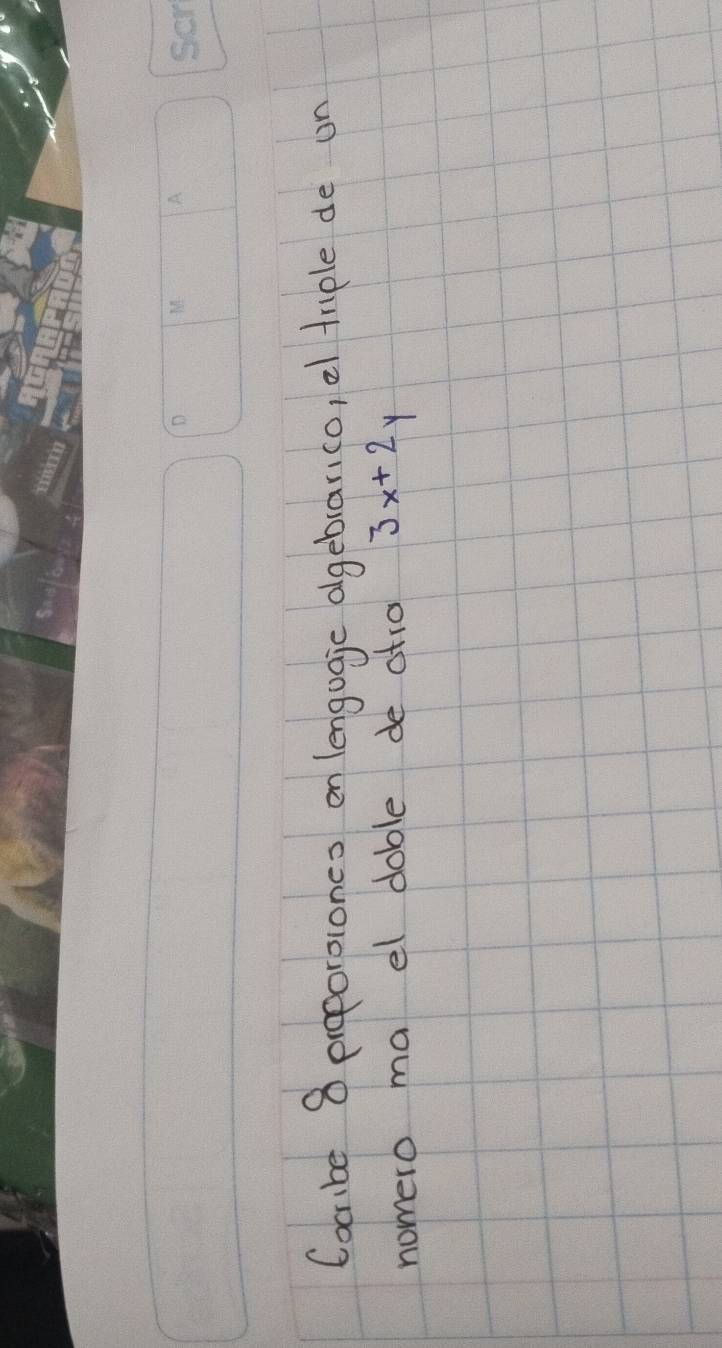 Scr
D M A
Escribe 8 proporsiones en lenguaje algebrarico, el triple de un
numero ma el doble de otro 3x+2y